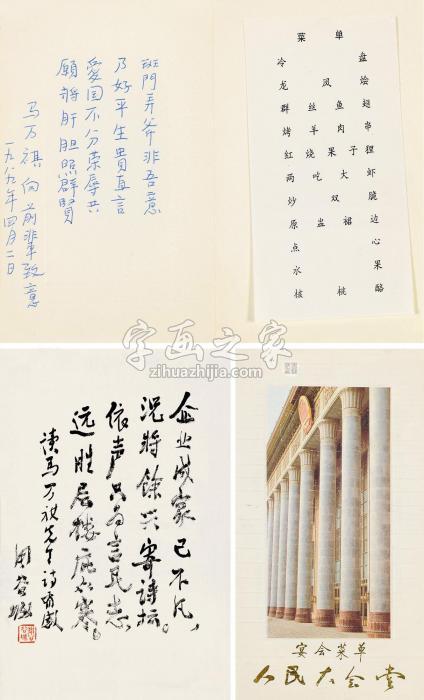 班門弄斧非吾意
乃好平生貴直言
愛国不分荣辱共
願将肝胆照群賢
马万祺向前辈致意
一九八九年四月二日
菜单
冷盘
龙凤烩
群丝鱼翅
烤羊肉串
红烧果子狸
两吃大虾
炒双脆
原盅裙边
点心
水果
核桃酪
字画之家
zihuazhijia.com
企业成家已不凡，
况将餘兴寄诗坛。
依声只为言民志，
远胜层楼庇大寒。
读马万祺先生诗有感
宴会菜单
人民大会堂